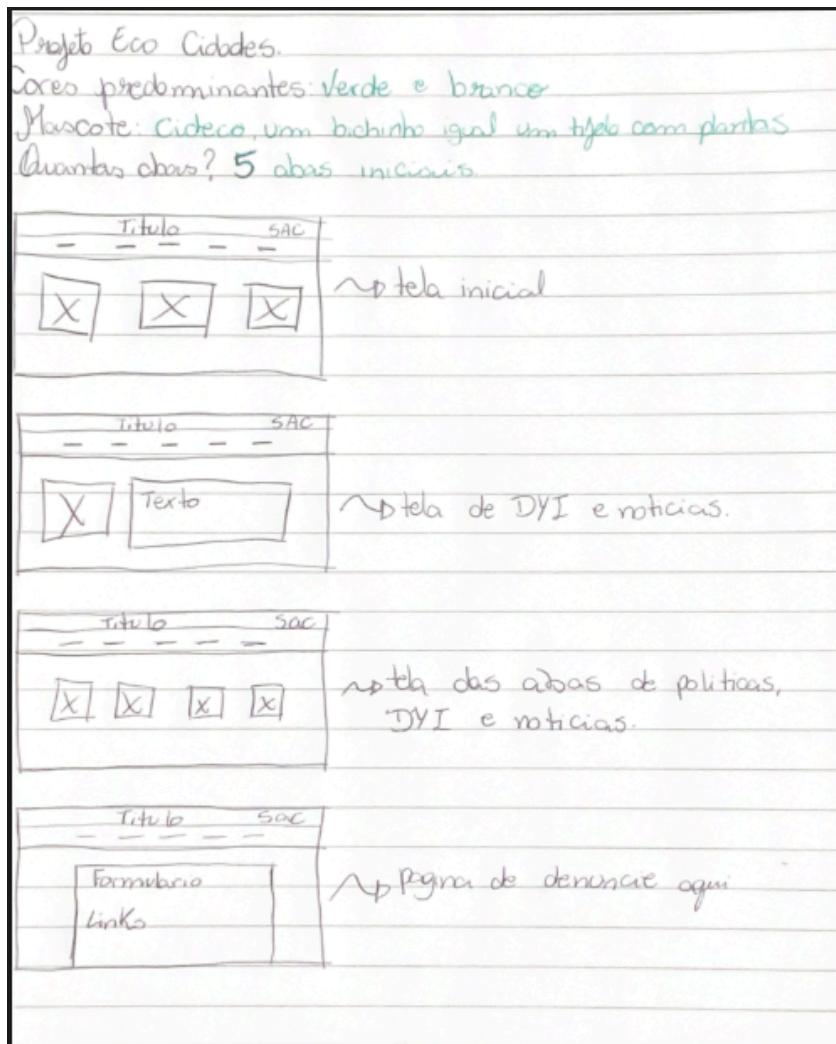 Projeto Eco Cidades.
Cores predominantes: Verde e branco
Mascote: Cideco, um bichinho igual um tijolo com plantas
Quantas abas? 5 abas iniciais
Titulo SAC
tela inicial
Titulo SAC
Texto
tela de DYI e noticias.
Titulo Sac
tela das abas de politicas,
DYI e noticias.
Titulo Sac
Formulario
Links
pagina de denuncie aqui